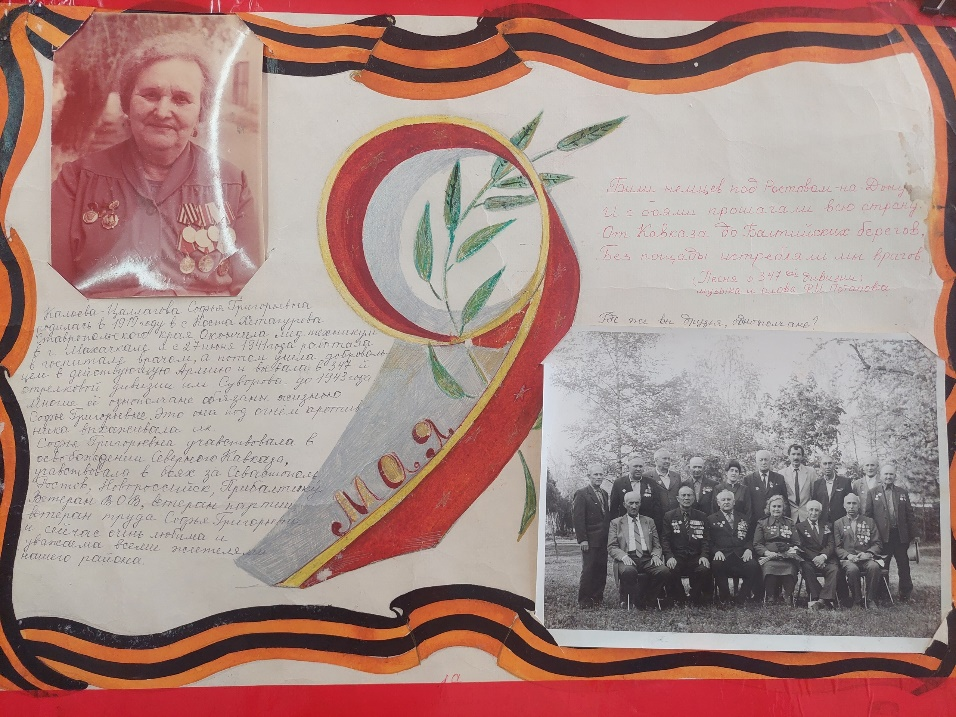 Калоева-Цаллагова Софья Григорьевна
родилась в 1919 году в с Коста Хетагурова
Ставропольского края Окончила Мед техникум
в г. Махачкале и с 27 июня 1941 года работала
в госпитале врачом, а потом ушла доброволь
цем в действующую Армию и воевала в 347 й
стрелковой дивизии им Суворова до 1943 года
Многие её однополчане обязаны жизнью
Софье Григорьевне. Это она под огнем против
ника вытаскивала их
Софья Григорьевна участвовала в
освобождении Северного Кавказа,
участвовала в боях за Севастополь
Ростов, Новороссийск, Прибалтику
Ветеран В.О.В, ветеран партии
ветеран труда Софья Григорьевна
и сейчас очень любима и
уважаема всеми жителями
нашего района.
9
МАЯ
Били немцев под Ростовом-на Дону
И с боями прошагали всю страну
От Кавказа до Балтийских берегов,
Без пощады истребляли мы врагов
Песня о 347 ой дивизии
музыка и слова
Где же вы друзья, однополчане?